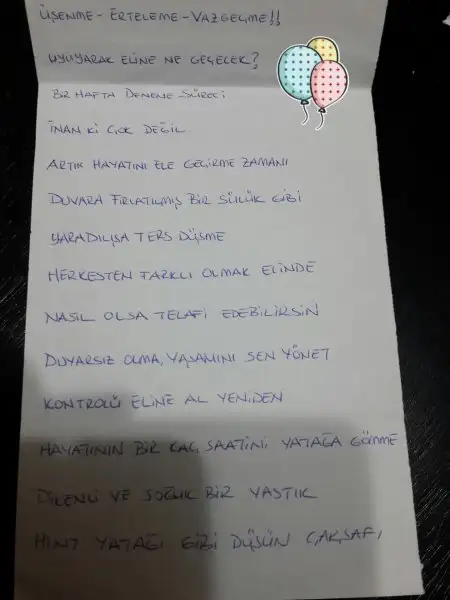 ÜŞENME - ERTELEME - VAZGEÇME!!
UYUYARAK ELİNE NE GEÇECEK?
BİR HAFTA DENEME SÜRECİ
İNAN Kİ ÇOK DEĞİL
ARTIK HAYATINI ELE GEÇİRME ZAMANI
DUVARA FIRLATILMIŞ BİR SÜLÜK GİBİ
YARADILIŞA TERS DÜŞME
HERKESTEN FARKLI OLMAK ELİNDE
NASIL OLSA TELAFİ EDEBİLİRSİN
DUYARSIZ OLMA, YAŞAMINI SEN YÖNET
KONTROLÜ ELİNE AL YENİDEN
HAYATININ BİR KAÇ SAATİNİ YATAĞA GÖMME
DİKENLİ VE SOĞUK BİR YASTIK
HİNT YATAĞI GİBİ DÜŞÜN ÇARŞAFI